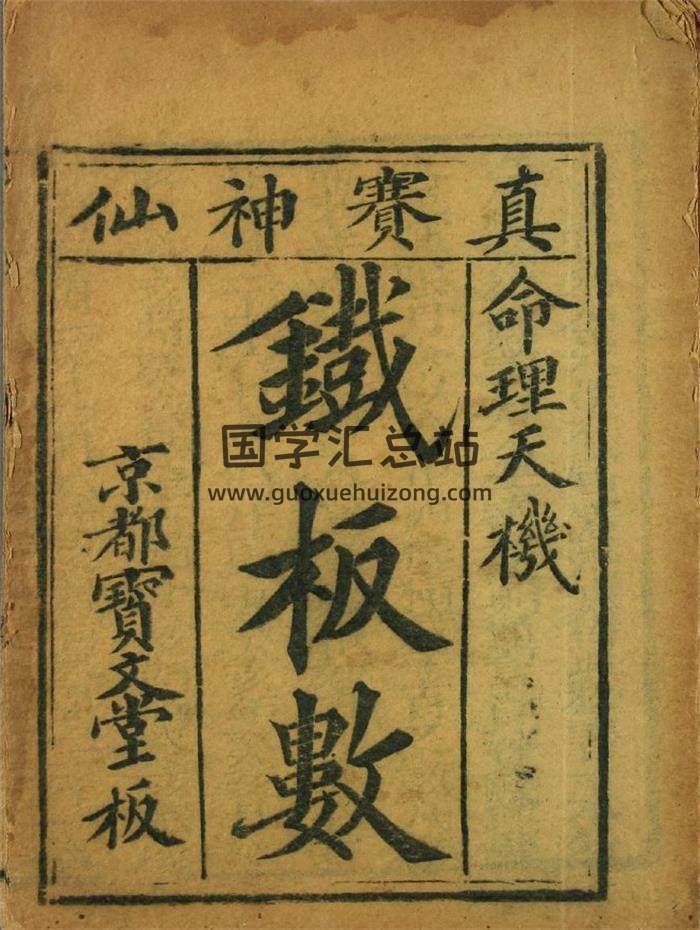 真賽神仙
命理天機
鐵板數
京都寶文堂板
国学汇总站
www.guoxuehuizong.com